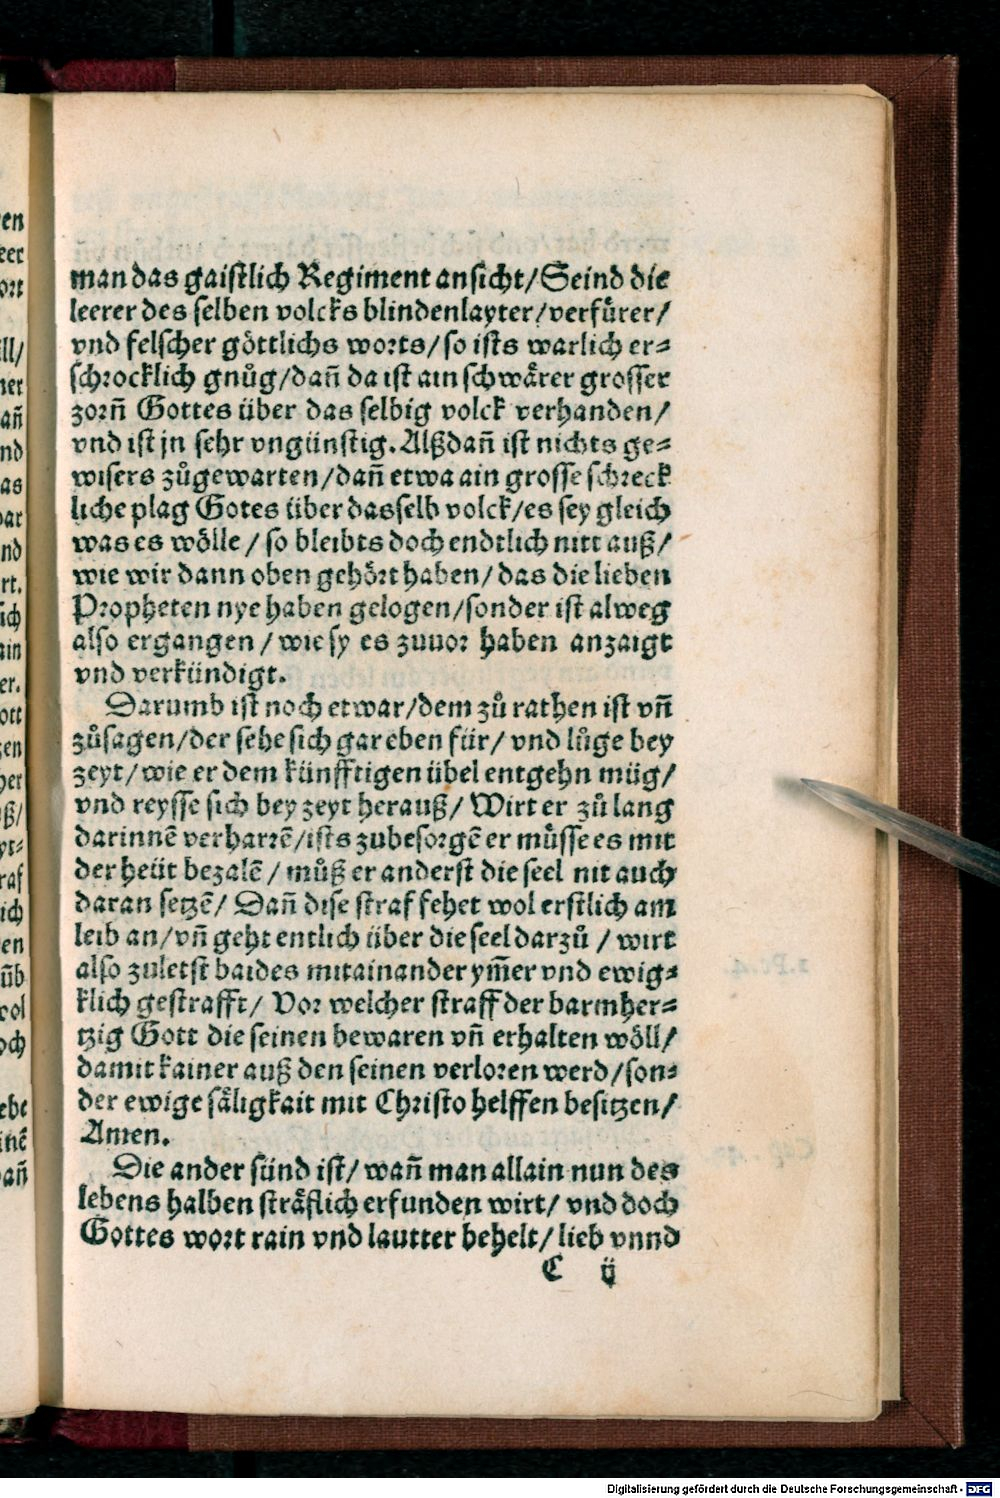 man das gaistlich Regiment ansicht/ Seind die
leerer des selben volcks blindenlayter/verfürer/
vnd felscher göttlichs worts/ so ists warlich er⸗
schrocklich gnůg/dañ da ist ain schwårer grosser
zorñ Gottes über das selbig volck verhanden/
vnd ist jn sehr vngünstig. Alßdañ ist nichts ge⸗
wisers zůgewarten/dañ etwa ain grosse schreck
liche plag Gotes über dasselb volck/es sey gleich
was es wölle / so bleibts doch endtlich nitt auß/
wie wir dann oben gehört haben/ das die lieben
Propheten nye haben gelogen/sonder ist alweg
also ergangen / wie sy es zuuor haben anzaigt
vnd verkündigt.
Darumb ist noch etwar/dem zů rathen ist vñ
zůsagen/der sehe sich gar eben für/ vnd lůge bey
zeyt/ wie er dem künfftigen übel entgehn müg/
vnd reysse sich bey zeyt herauß/ Wirt er zů lang
darinnē verharrē/ists zubesorgē er můsse es mit
der heüt bezalē / můß er anderst die seel nit auch
daran setzē/ Dañ dise straf fehet wol erstlich am
leib an/vñ geht entlich über die seel darzů / wirt
also zuletst baides mitainander ym̃er vnd ewig⸗
klich gestrafft/ Vor welcher straff der barmher⸗
tzig Gott die seinen bewaren vñ erhalten wöll/
damit kainer auß den seinen verloren werd/son⸗
der ewige såligkait mit Christo helffen besitzen/
Amen.
Die ander sünd ist/ wañ man allain nun des
lebens halben stråflich erfunden wirt/ vnd doch
Gottes wort rain vnd lautter behelt/ lieb vnnd
C ij
Digitalisierung gefördert durch die Deutsche Forschungsgemeinschaft - DFG